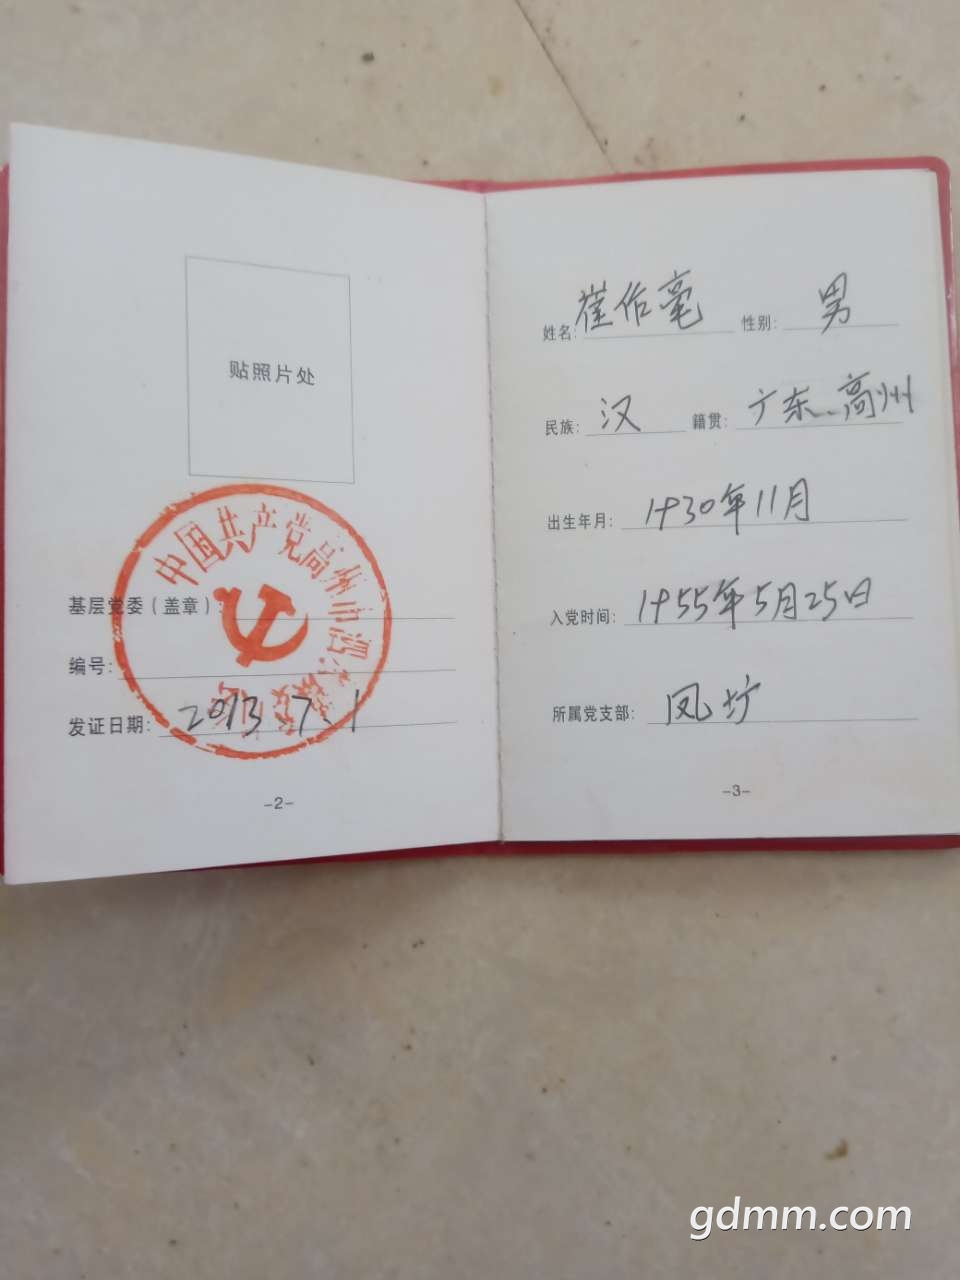 贴照片处
中国共产党高州市泗水镇委员会
基层党委（盖章）：
编号：
发证日期： 2013.7.1
-2-
姓名： 崔佑毫 性别： 男
民族： 汉 籍贯： 广东..高州
出生年月： 1930年11月
入党时间： 1955年5月25日
所属党支部： 凤坊
-3-
gdmm.com